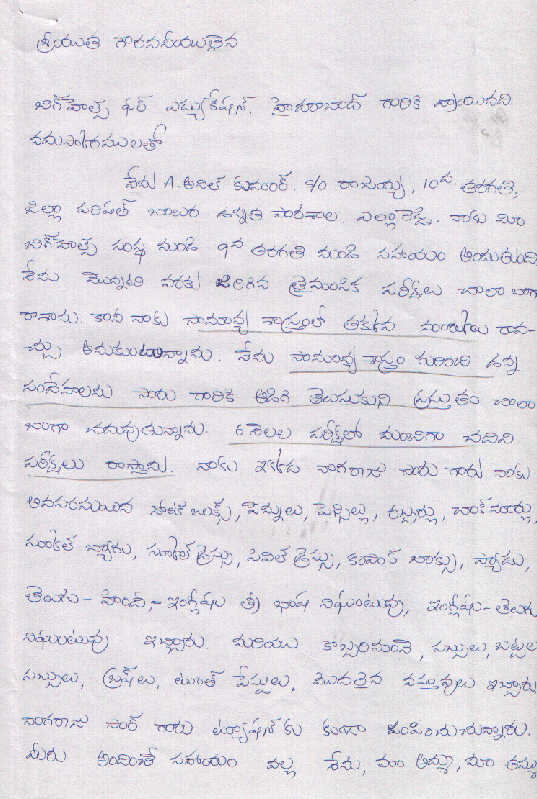 శ్రీయుత గౌరవనీయులైన
బిగ్‌హెల్ప్ ఫర్ ఎడ్యుకేషన్, హైదరాబాద్ గారికి వ్రాయునది
నమస్కారములతో
నేను A. అనిల్ కుమార్. S/o రామయ్య, 10వ తరగతి,
జిల్లా పరిషత్ బాలుర ఉన్నత పాఠశాల ఎల్లారెడ్డి. నాకు మీ
బిగ్‌హెల్ప్ సంస్థ నుండి 9వ తరగతి నుండి సహాయం అందుతుంది
నేను మొన్నటి వరకు జరిగిన త్రైమాసిక పరీక్షలు చాలా బాగా
రాశాను. కానీ నాకు సామాన్య శాస్త్రంలో తక్కువ మార్కులు రావ-
చ్చు అనుకుంటున్నాను. నేను సామాన్య శాస్త్రం గురించి ఉన్న
సందేహాలను సారు గారికి అడిగి తెలుసుకుని ప్రస్తుతం చాలా
బాగా చదువుతున్నాను. 6 నెలల పరీక్షలో మంచిగా చదివి
పరీక్షలు రాస్తాను. నాకు ఇక్కడ నాగరాజు సారు గారు నాకు
అవసరమయిన నోట్ బుక్స్, పెన్నులు, పెన్సిల్లు, రబ్బర్లు, చాక్ మార్లు,
స్కూల్ బ్యాగు, స్కూల్ డ్రెస్సు, సివిల్ డ్రెస్సు, కంపాస్ బాక్సు, ప్యాడు,
తెలుగు - హిందీ - ఇంగ్లీషు త్రి భాష నిఘంటువు, ఇంగ్లీషు - తెలుగు
నిఘంటువు ఇచ్చారు. మరియు కొబ్బరినూనె, సబ్బులు, బట్టల
సబ్బులు, బ్రష్‌లు, టూత్ పేస్టులు, మొదలైన వస్తువులు ఇచ్చారు
నాగరాజు సార్ గారు ట్యూషన్ కు కూడా పంపించుచున్నారు.
మీరు అందించే సహాయం వల్ల నేను, మా అమ్మా, మా తమ్ము